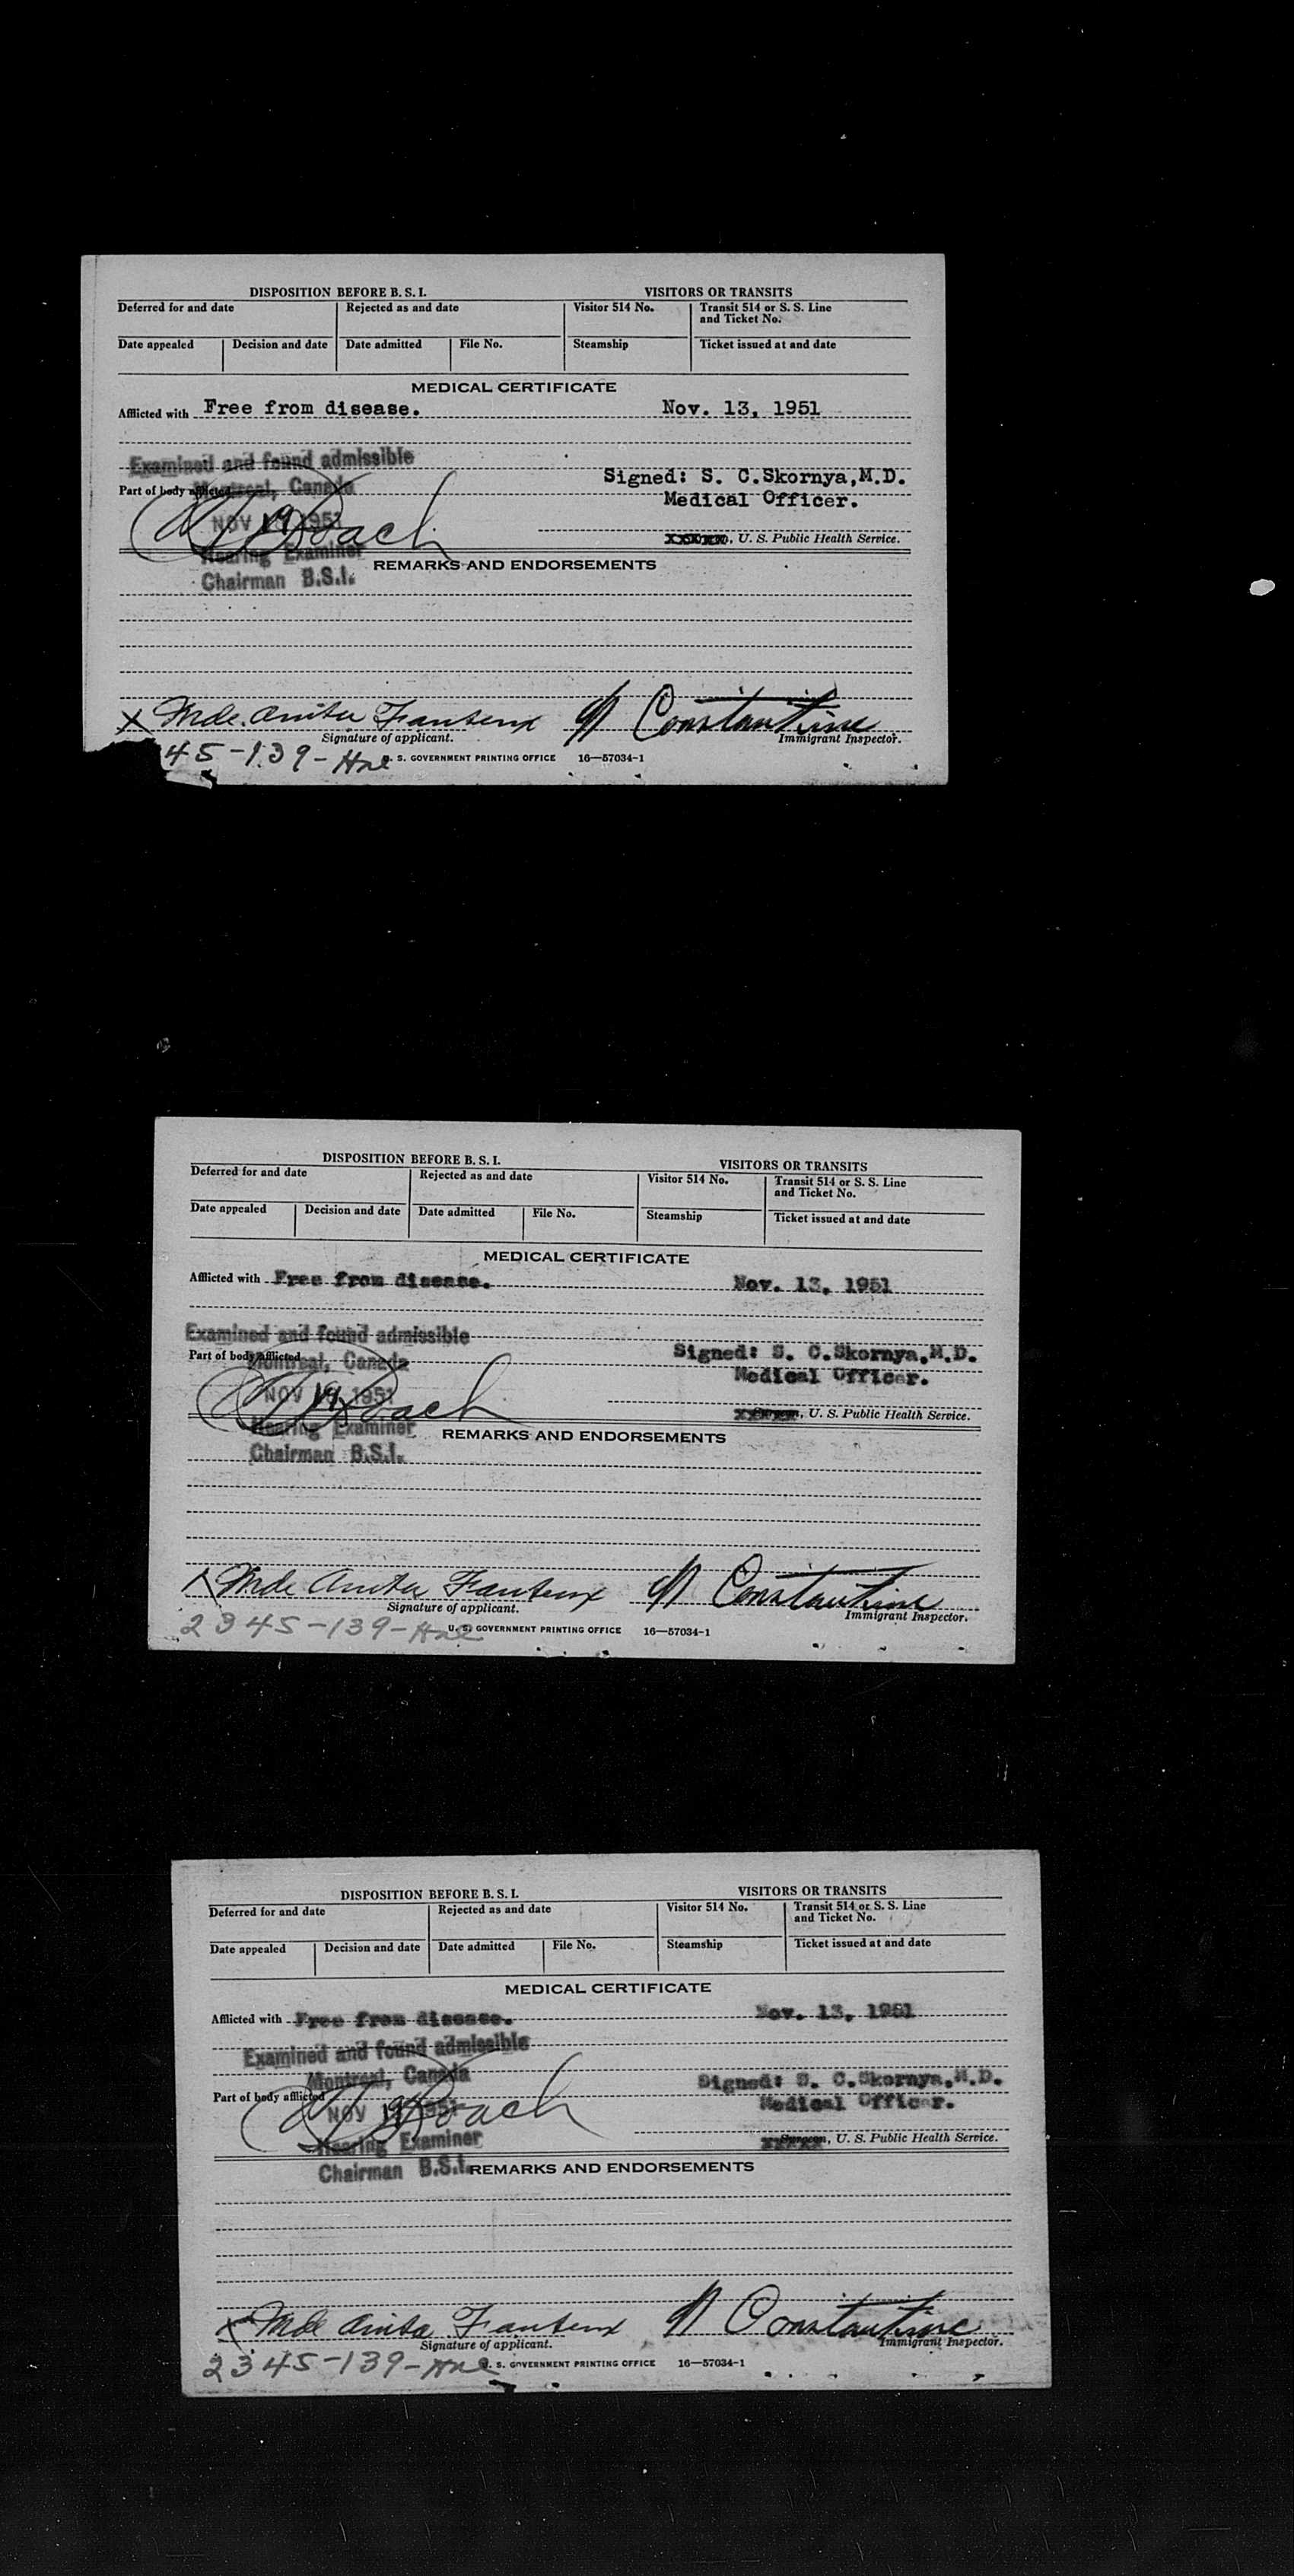 DISPOSITION BEFORE B. S. I. VISITORS OR TRANSITS
Deferred for and date Rejected as and date Visitor 514 No. Transit 514 or S. S. Line and Ticket No.
Date appealed Decision and date Date admitted File No. Steamship Ticket issued at and date
MEDICAL CERTIFICATE
Afflicted with Free from disease. Nov. 13, 1951
Examined and found admissible
Signed: S. C. Skornya, M.D.
Part of body afflicted Montreal, Canada
Medical Officer.
NOV 19 1951
Roach
, U. S. Public Health Service.
Hearing Examiner
REMARKS AND ENDORSEMENTS
Chairman B.S.I.
X Mde. Anita Fauteux Constantine
Signature of applicant. Immigrant Inspector.
45-139- U. S. GOVERNMENT PRINTING OFFICE 16—57034-1
DISPOSITION BEFORE B. S. I. VISITORS OR TRANSITS
Deferred for and date Rejected as and date Visitor 514 No. Transit 514 or S. S. Line and Ticket No.
Date appealed Decision and date Date admitted File No. Steamship Ticket issued at and date
MEDICAL CERTIFICATE
Afflicted with Free from disease. Nov. 13, 1951
Examined and found admissible
Signed: S. C. Skornya, M.D.
Part of body afflicted Montreal, Canada
Medical Officer.
NOV 19 1951
Roach
Surgeon, U. S. Public Health Service.
Hearing Examiner
REMARKS AND ENDORSEMENTS
Chairman B.S.I.
X Mde Anita Fauteux Constantine
Signature of applicant. Immigrant Inspector.
2345-139- U. S. GOVERNMENT PRINTING OFFICE 16—57034-1
DISPOSITION BEFORE B. S. I. VISITORS OR TRANSITS
Deferred for and date Rejected as and date Visitor 514 No. Transit 514 or S. S. Line and Ticket No.
Date appealed Decision and date Date admitted File No. Steamship Ticket issued at and date
MEDICAL CERTIFICATE
Afflicted with Free from disease. Nov. 13, 1951
Examined and found admissible
Montreal, Canada
Signed: S. C. Skornya, M.D.
Part of body afflicted
Medical Officer.
NOV 19 1951
Roach
Surgeon, U. S. Public Health Service.
Hearing Examiner
Chairman B.S.I. REMARKS AND ENDORSEMENTS
X Mde Anita Fauteux Constantine
Signature of applicant. Immigrant Inspector.
2345-139- U. S. GOVERNMENT PRINTING OFFICE 16—57034-1